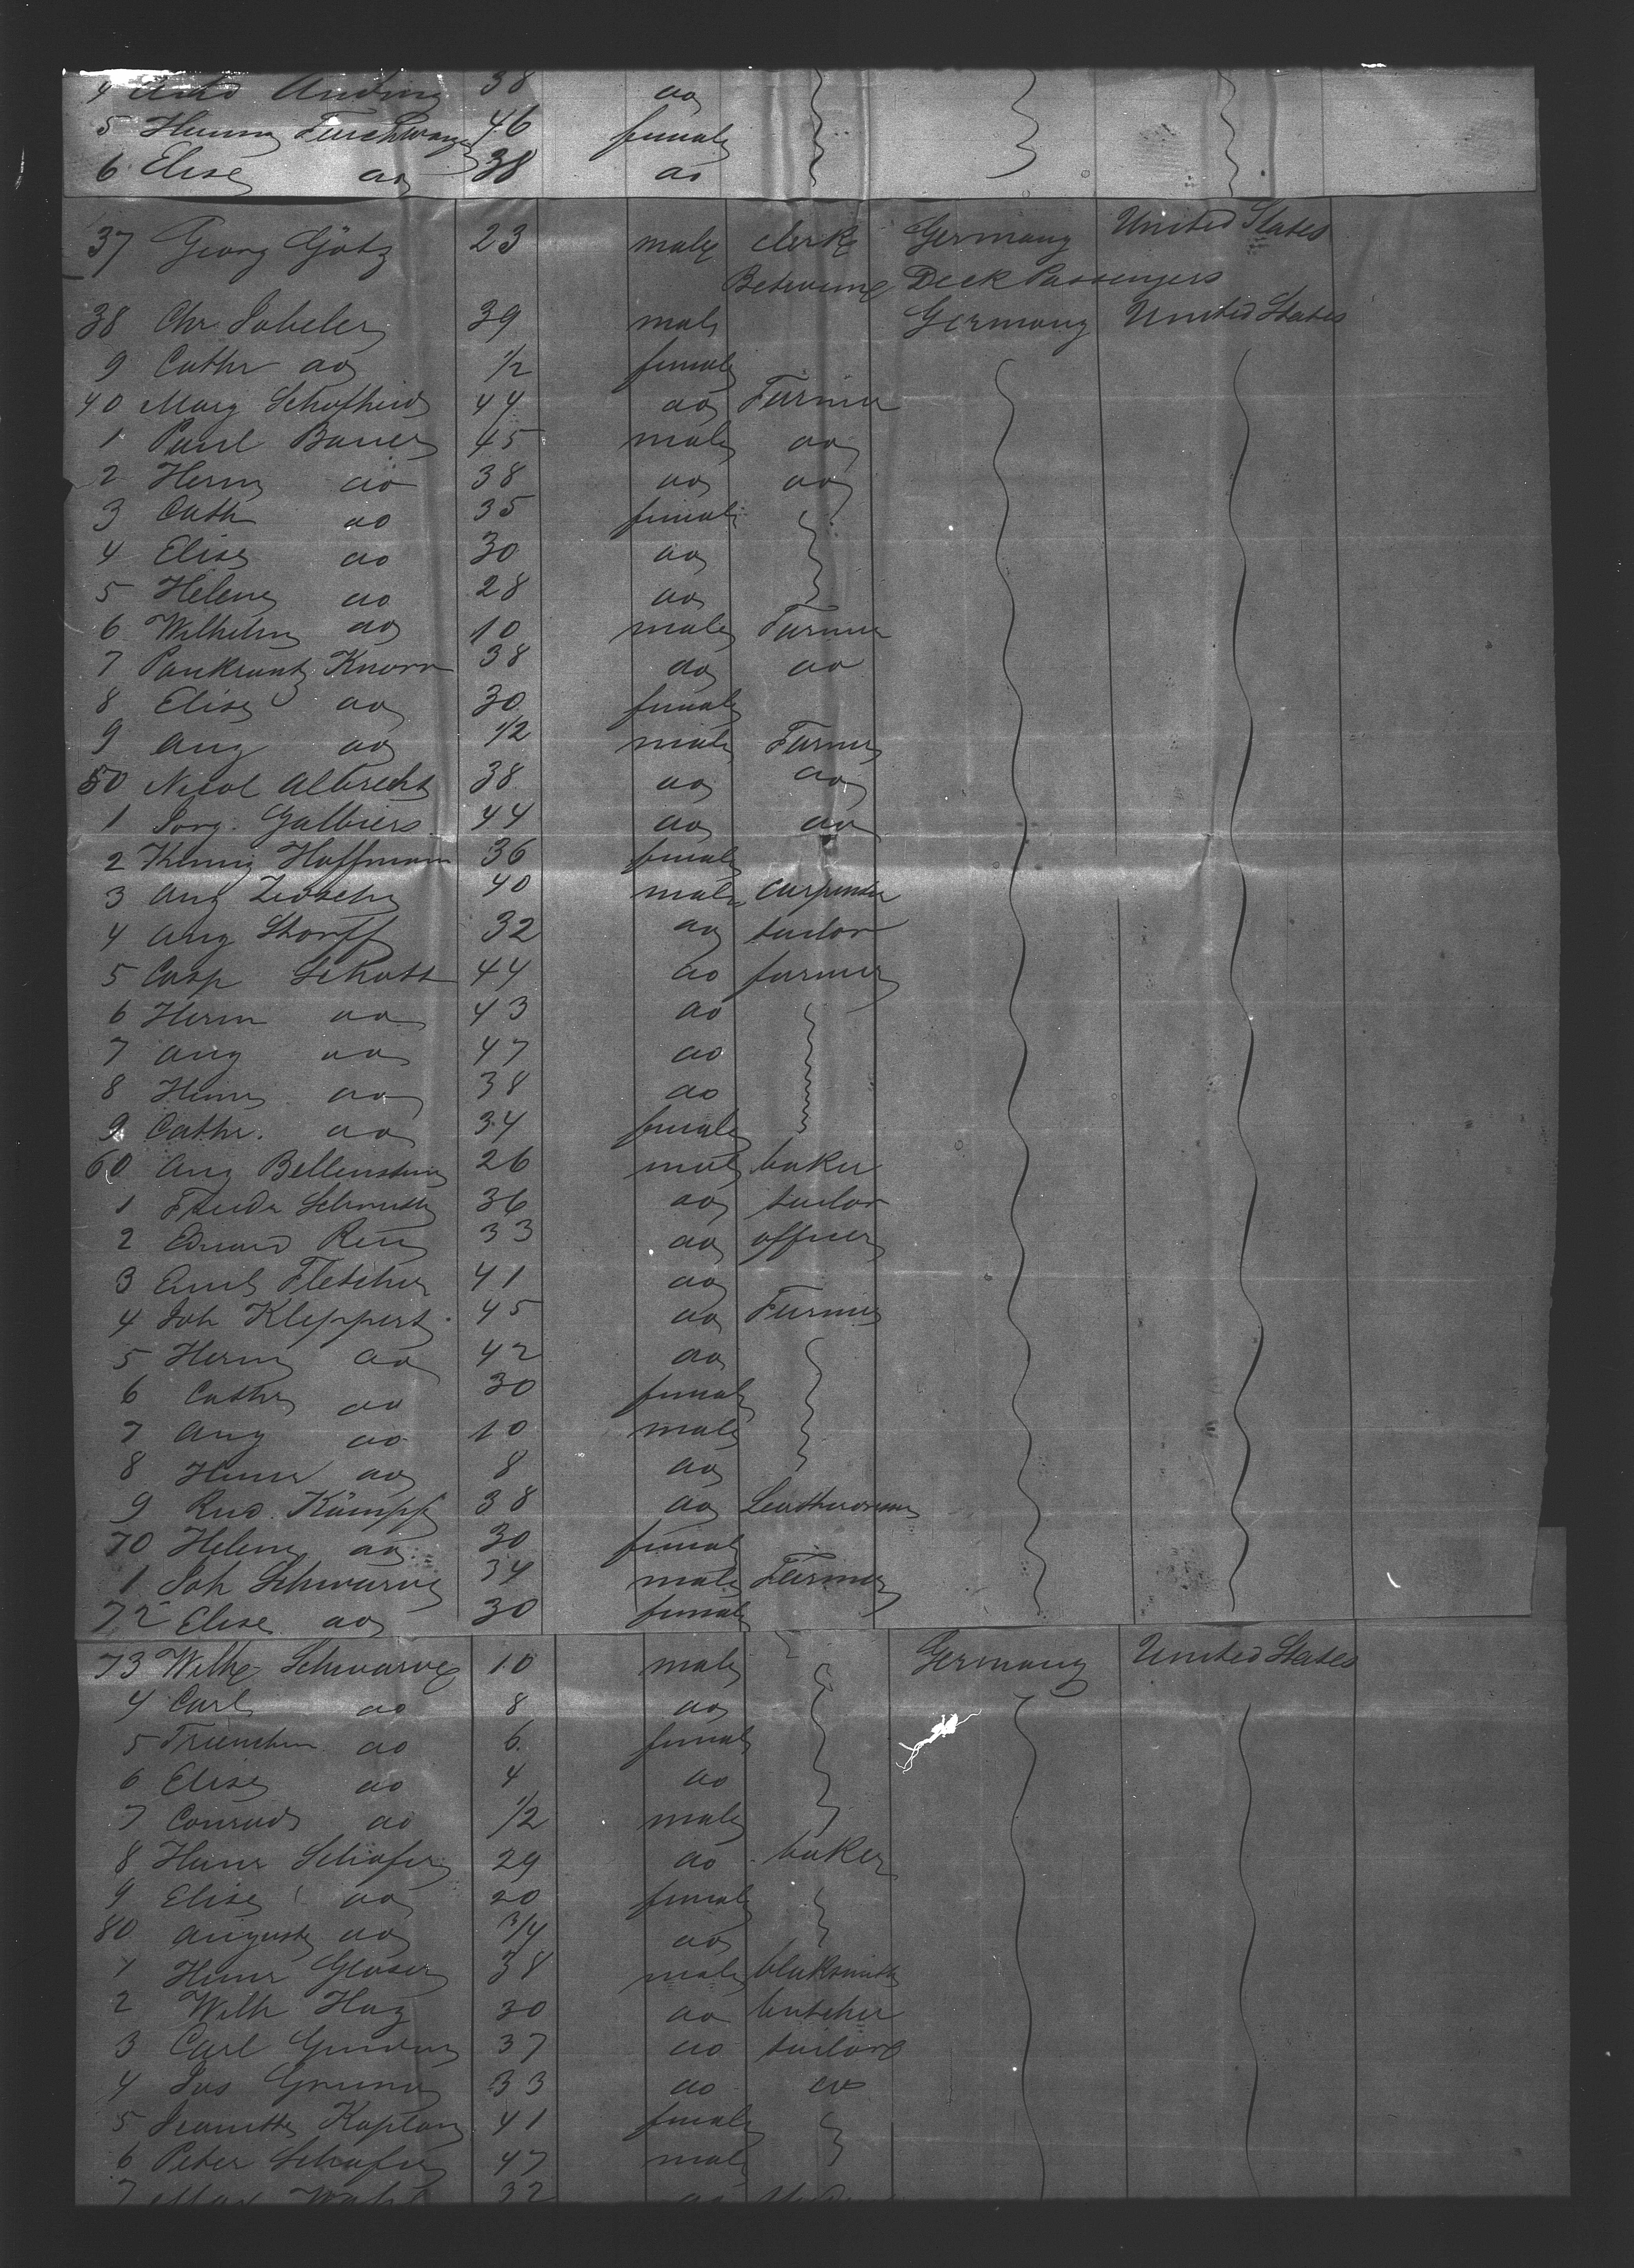 4 Anding 38 do
5 46 female
6 Elise do 38 do
37 Georg Götz 23 male clerk Germany United States
Betweene Deck Passengers
38 Chr. 39 male Germany United States
9 Cathr do 1/2 female
40 Marg 44 do Farmer
1 Paul Bauer 45 male do
2 Herm do 38 do do
3 Cath do 35 female
4 Elise do 30 do
5 Helene do 28 do
6 Wilhelm do 10 male Farmer
7 Pankrantz Knorr 38 do do
8 Elise do 30 female
9 Aug do 1/2 male Farmer
50 Nicol Albrecht 38 do do
1 Galbiers 44 do do
2 Hoffmann 36 female
3 Aug 40 male carpenter
4 Aug 32 do tailor
5 Casp Schott 44 do farmer
6 Herm do 43 do
7 Aug do 47 do
8 Heinr do 38 do
9 Cathr. do 34 female
60 Aug Bellenstein 26 male baker
1 36 do tailor
2 Eduard 33 do officer
3 Emil Fletcher 41 do
4 Joh Kleppert 45 do Farmer
5 Herm do 42 do
6 Cathr do 30 female
7 Aug do 10 male
8 Heinr do 8 do
9 Rud. Kämpf 38 do
70 Helene do 30 female
1 Joh Schwarve 34 male Farmer
72 Elise do 30 female
73 Wilh Schwarve 10 male Germany United States
4 Carl do 8 do
5 Trienchen do 6 female
6 Elise do 4 do
7 Conrad do 1/2 male
8 Heinr Schäfer 29 do baker
9 Elise do 20 female
80 Auguste do 3/4 do
1 Heinr Glaser 38 male blaksmith
2 Wilh Haz 30 do butcher
3 Carl 37 do tailor
4 33 do do
5 Jeanette Kaplan 41 female
6 Peter Schafer 47 male
7 32